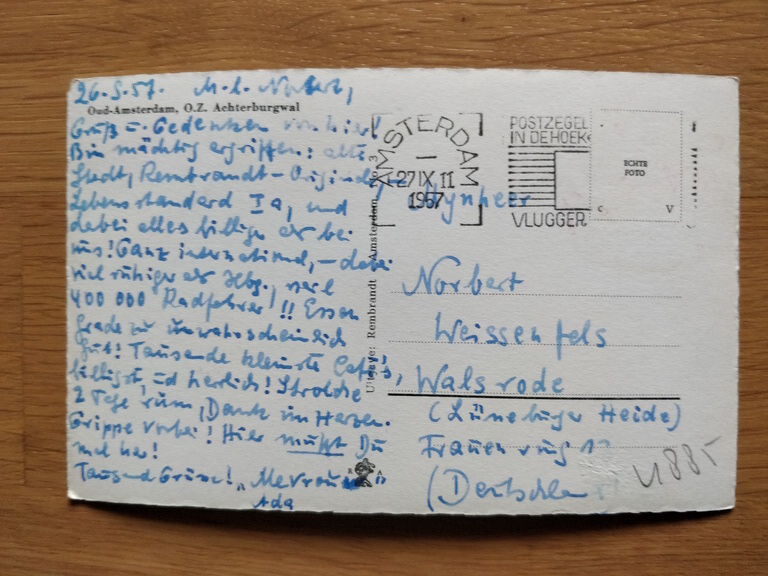 26.9.57. M. l. Norbert,
Oud-Amsterdam, O.Z. Achterburgwal
Gruß u. Gedenken von hier!
Bin mächtig ergriffen: alte
Stadt, Rembrandt-Originale,
Lebensstandard Ia, und
dabei alles billiger als bei
uns! Ganz international, – dabei
viel ruhiger als Hbg., weil
400 000 Radfahrer!!! Essen
grade zu unwahrscheinlich
gut! Tausende kleinste Cafés,
billigst, und herlich! Strolche
2 Tage rum, Dank im Herzen.
Grippe vorbei! Hier mußt Du
mal her!
Tausend Grüsse! „Mevrouw"
Ada
Uitgave: Rembrandt Amsterdam No 3
AMSTERDAM
27 IX 11
1957
POSTZEGEL
IN DE HOEK
VLUGGER
ECHTE
FOTO
C V
Mynheer
Norbert
Weissenfels
Walsrode
(Lüneburger Heide)
Frauen
(Deutschla